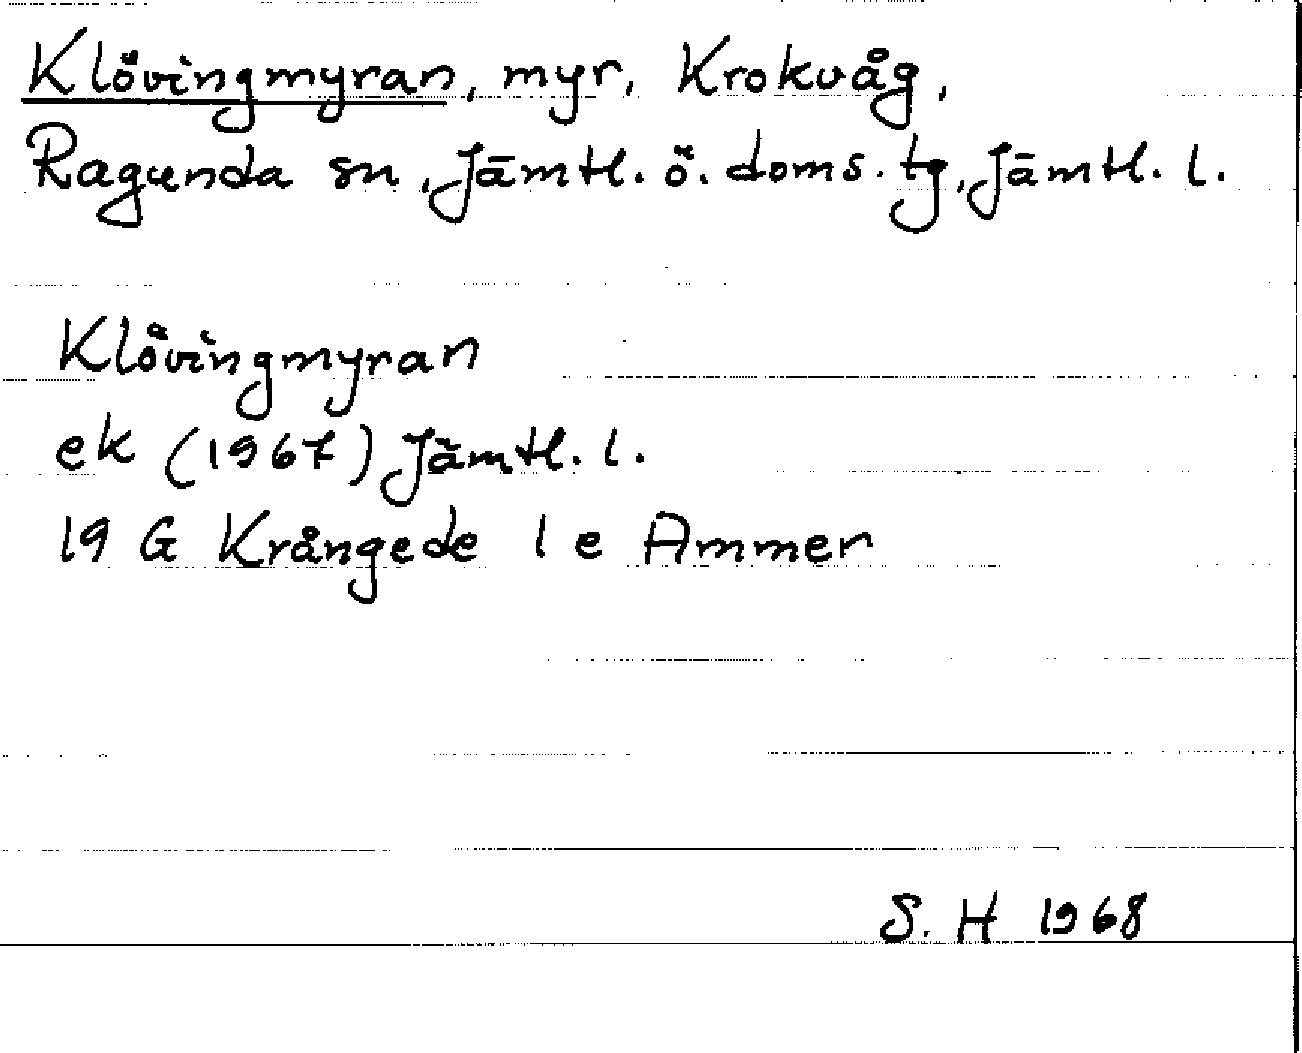 Klövingmyran, myr, Krokvåg,
Ragunda sn, Jämtl. ö. doms. tg, Jämtl. l.
Klövingmyran
ek (1967) Jämtl. l.
19 G Krångede 1 e Ammer
S. H 1968